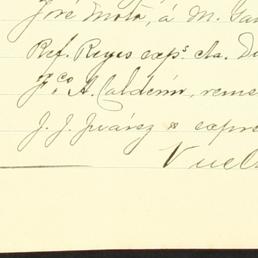 José Mota, á M. Ga
Ref. Reyes exps. cta. D
Fco. A. Calderón, reme
J. J. Juárez s expre
Vuel